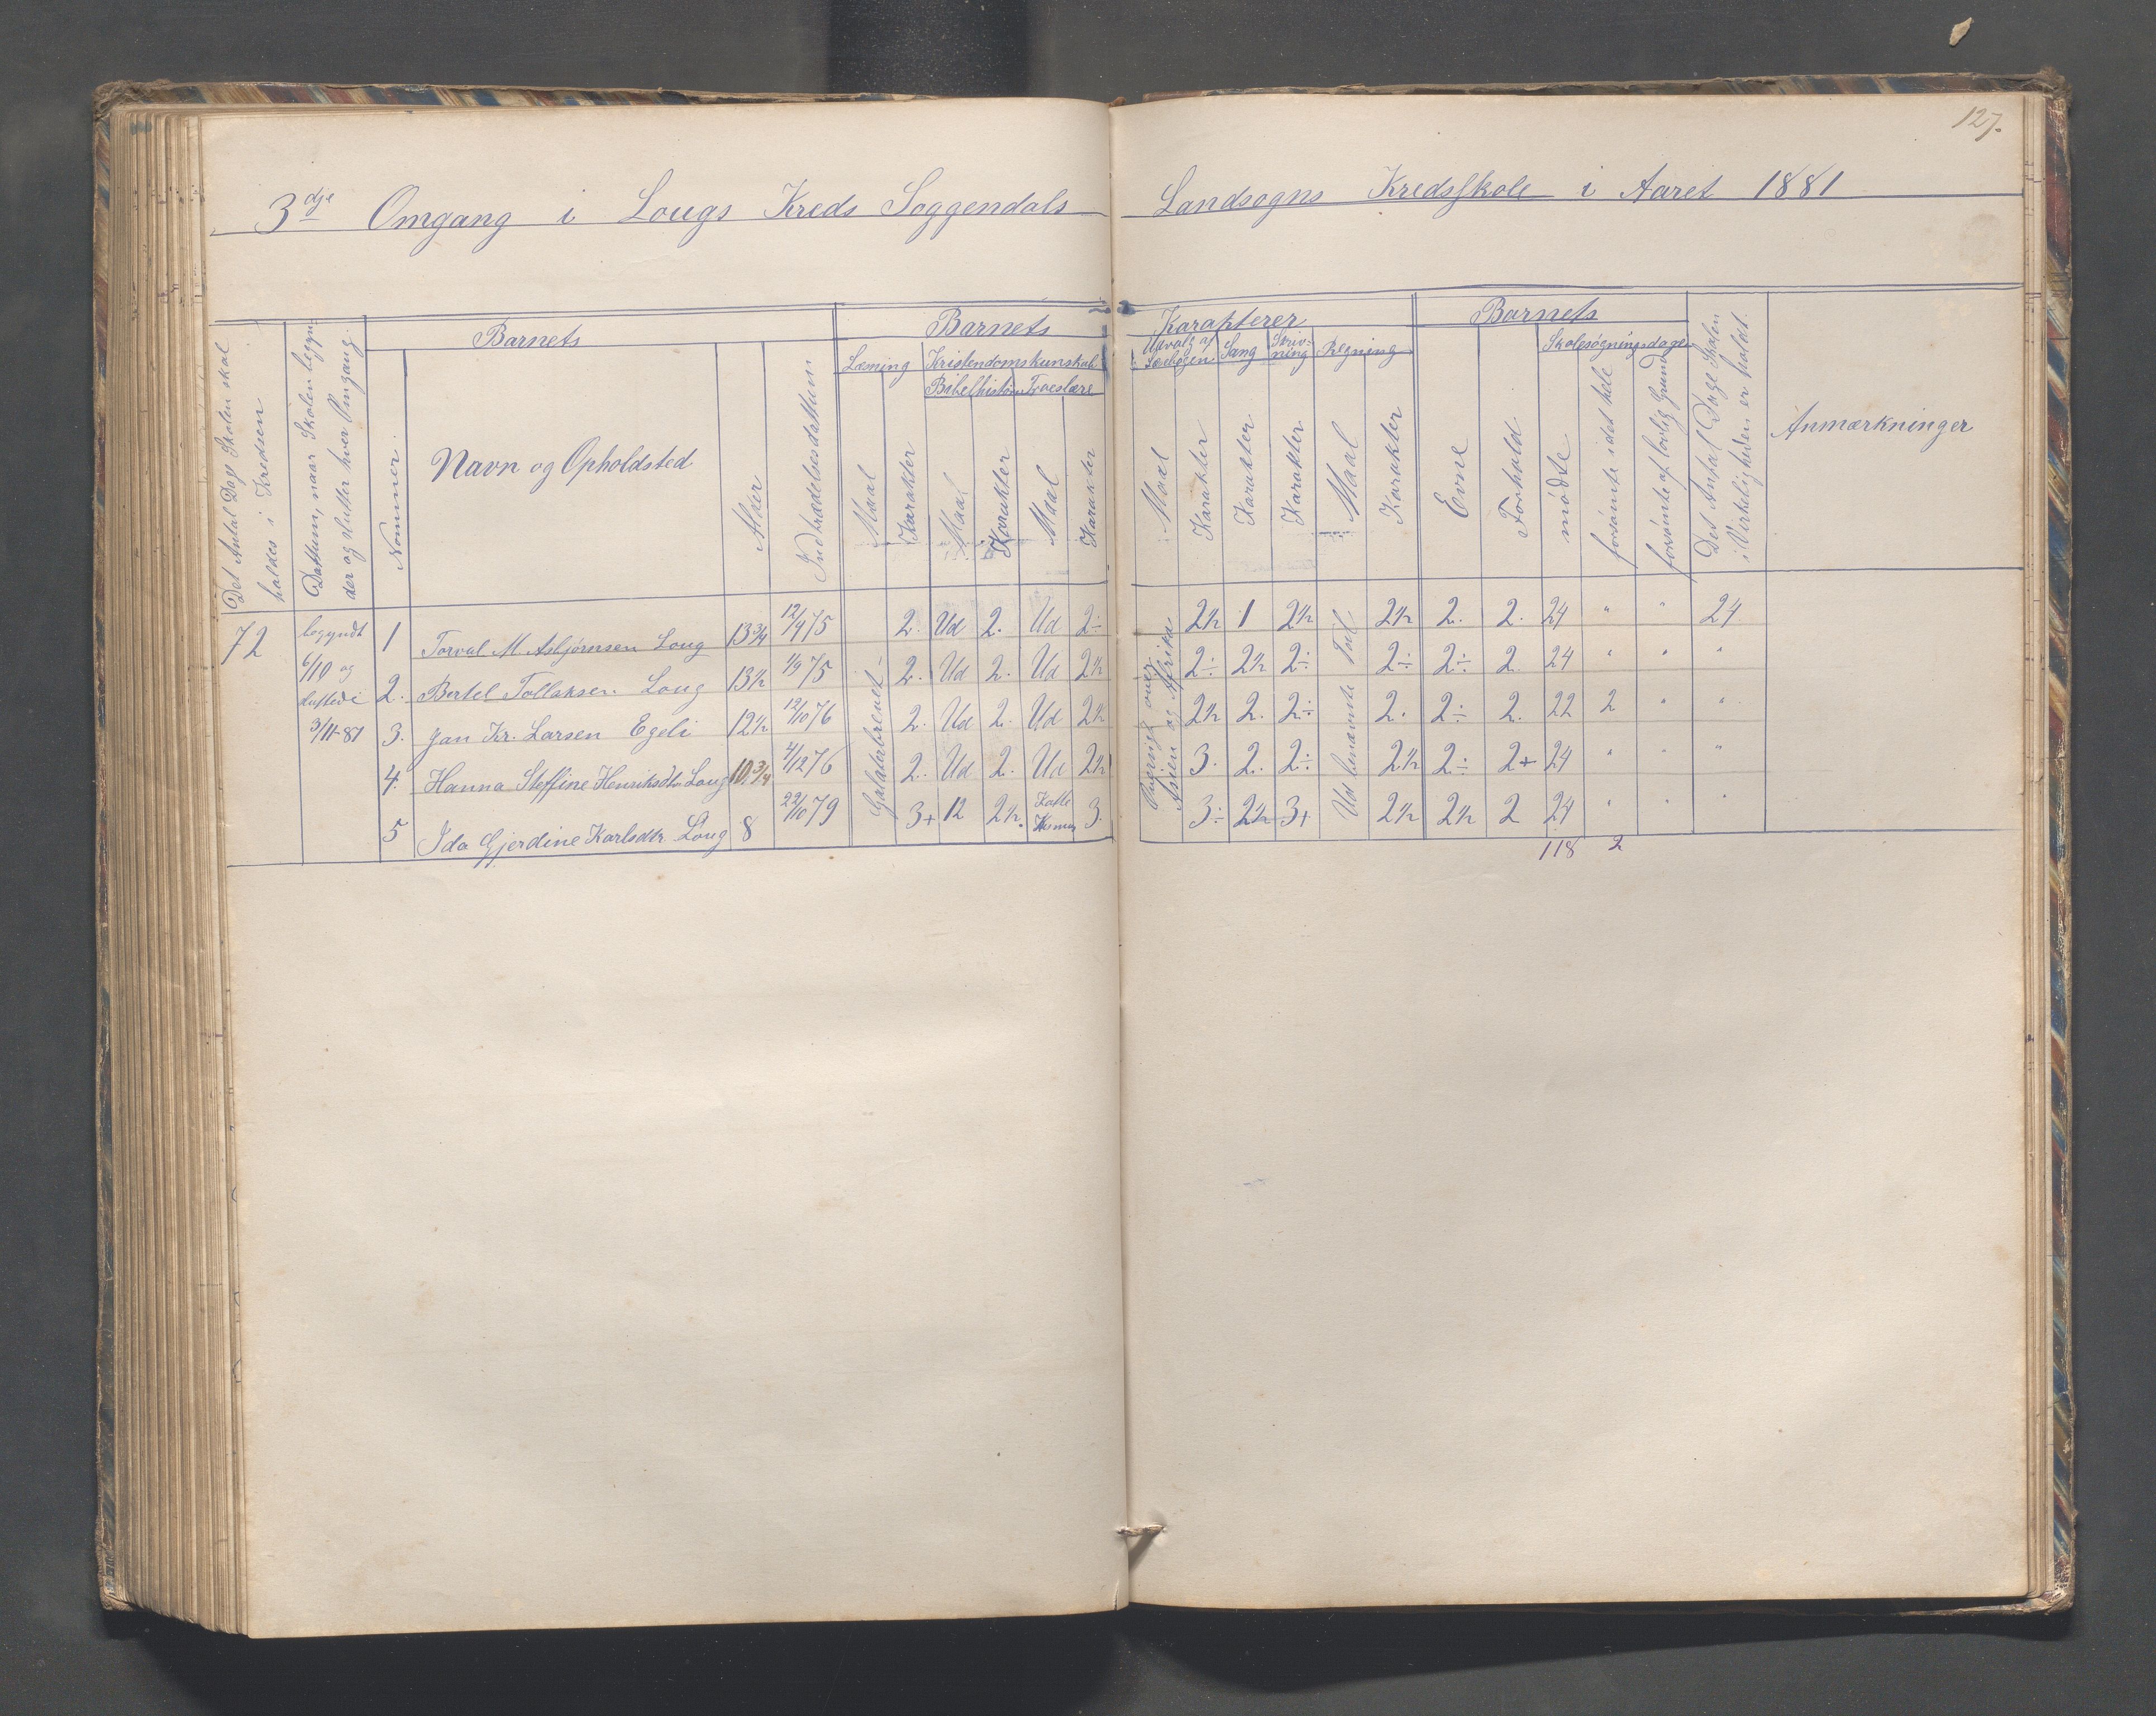 127.
3dje Omgang i Lougs Kreds Soggendals Landsogns Kredsskole i Aaret 1881
Det Antal Dage Skolen skal holdes i Kredsen
Dattum, naar Skolen begynder og slutter hver Omgang.
Barnets
Nommer.
Navn og Opholdsted
Alder
Indtrædelsesdattum
Barnets Karakterer
Læsning
Maal
Karakter
Kristendomskunskab
Bibelhistorie
Maal
Karakter
Troeslære
Maal
Karakter
Udvalg af Læsebogen
Maal
Karakter
Sang
Karakter
Skrivning
Karakter
Regning
Maal
Karakter
Barnets
Evne
Forhold
Skolesøgningsdage
mødte
forsømte i det hele
forsømte af lovlig Grund
Det Antal Dage Skolen i Virkeligheden er holdt.
Anmærkninger
72
begyndt 6/10 og sluttede 3/11-81
Galaterbrevet
Asien og Afrika
Ud benævnte Tal
1 Torval M Asbjørnsen Loug 13 3/4 12/475 2. Ud 2. Ud 2÷ 2½ 1 2½ 2½ 2. 2. 24 " " 24
2. Bertel Tollaksen Loug 13½ 1/975 2. Ud 2. Ud 2½ 2÷ 2½ 2÷ 2÷ 2÷ 2. 24 " " "
3. Jan Kr. Larsen Egeli 12½ 12/1076 2. Ud 2. Ud 2½ 2½ 2. 2÷ 2. 2÷ 2. 22 2 " "
4. Hanna Steffine Henriksdtr Loug 10 3/4 4/1276 2. Ud 2. Ud 2½ 3. 2. 2÷ 2½ 2÷ 2+ 24 " " "
5 Ida Gjerdine Karlsdtr. Loug 8 22/1079 3+ 12 2½. 3. 3÷ 2½ 3+ 2½ 2½ 2 24 " " "
118 2